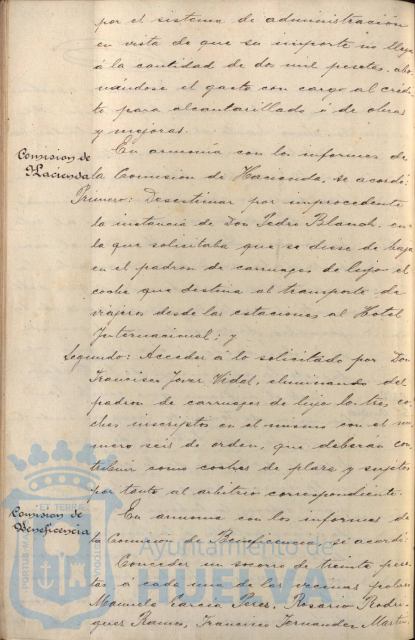 por el sistema de administración
en vista de que su importe no llega
á la cantidad de dos mil pesetas, abo
nándose el gasto con cargo al crédi
to para alcantarillado ó de obras
y mejoras.
Comision de
Hacienda
En armonía con los informes de
la Comision de Hacienda, se acordó:
Primero: Desestimar por improcedente
la instancia de Don Pedro Blanch, en
la que solicitaba que se diese de baja
en el padron de carruages de lujo el
coche que destina al transporte de
viajeros desde las estaciones al Hotel
Internacional; y
Segundo: Acceder á lo solicitado por Don
Francisco Jover Vidal, eliminando del
padron de carruages de lujo los tres co
ches inscriptos en el mismo con el nú
mero seis de orden, que deberán con
tribuir como coches de plaza y sujetos
por tanto al arbitrio correspondiente.
Comision de
Beneficencia
En armonia con los informes de
la Comision de Beneficencia, se acordó:
Conceder un socorro de treinta pese
tas á cada una de las vecinas pobres
Manuela Garcia Perez, Rosario Rodri
guez Ramos, Francisca Fernandez Martin
Ayuntamiento de
HUELVA